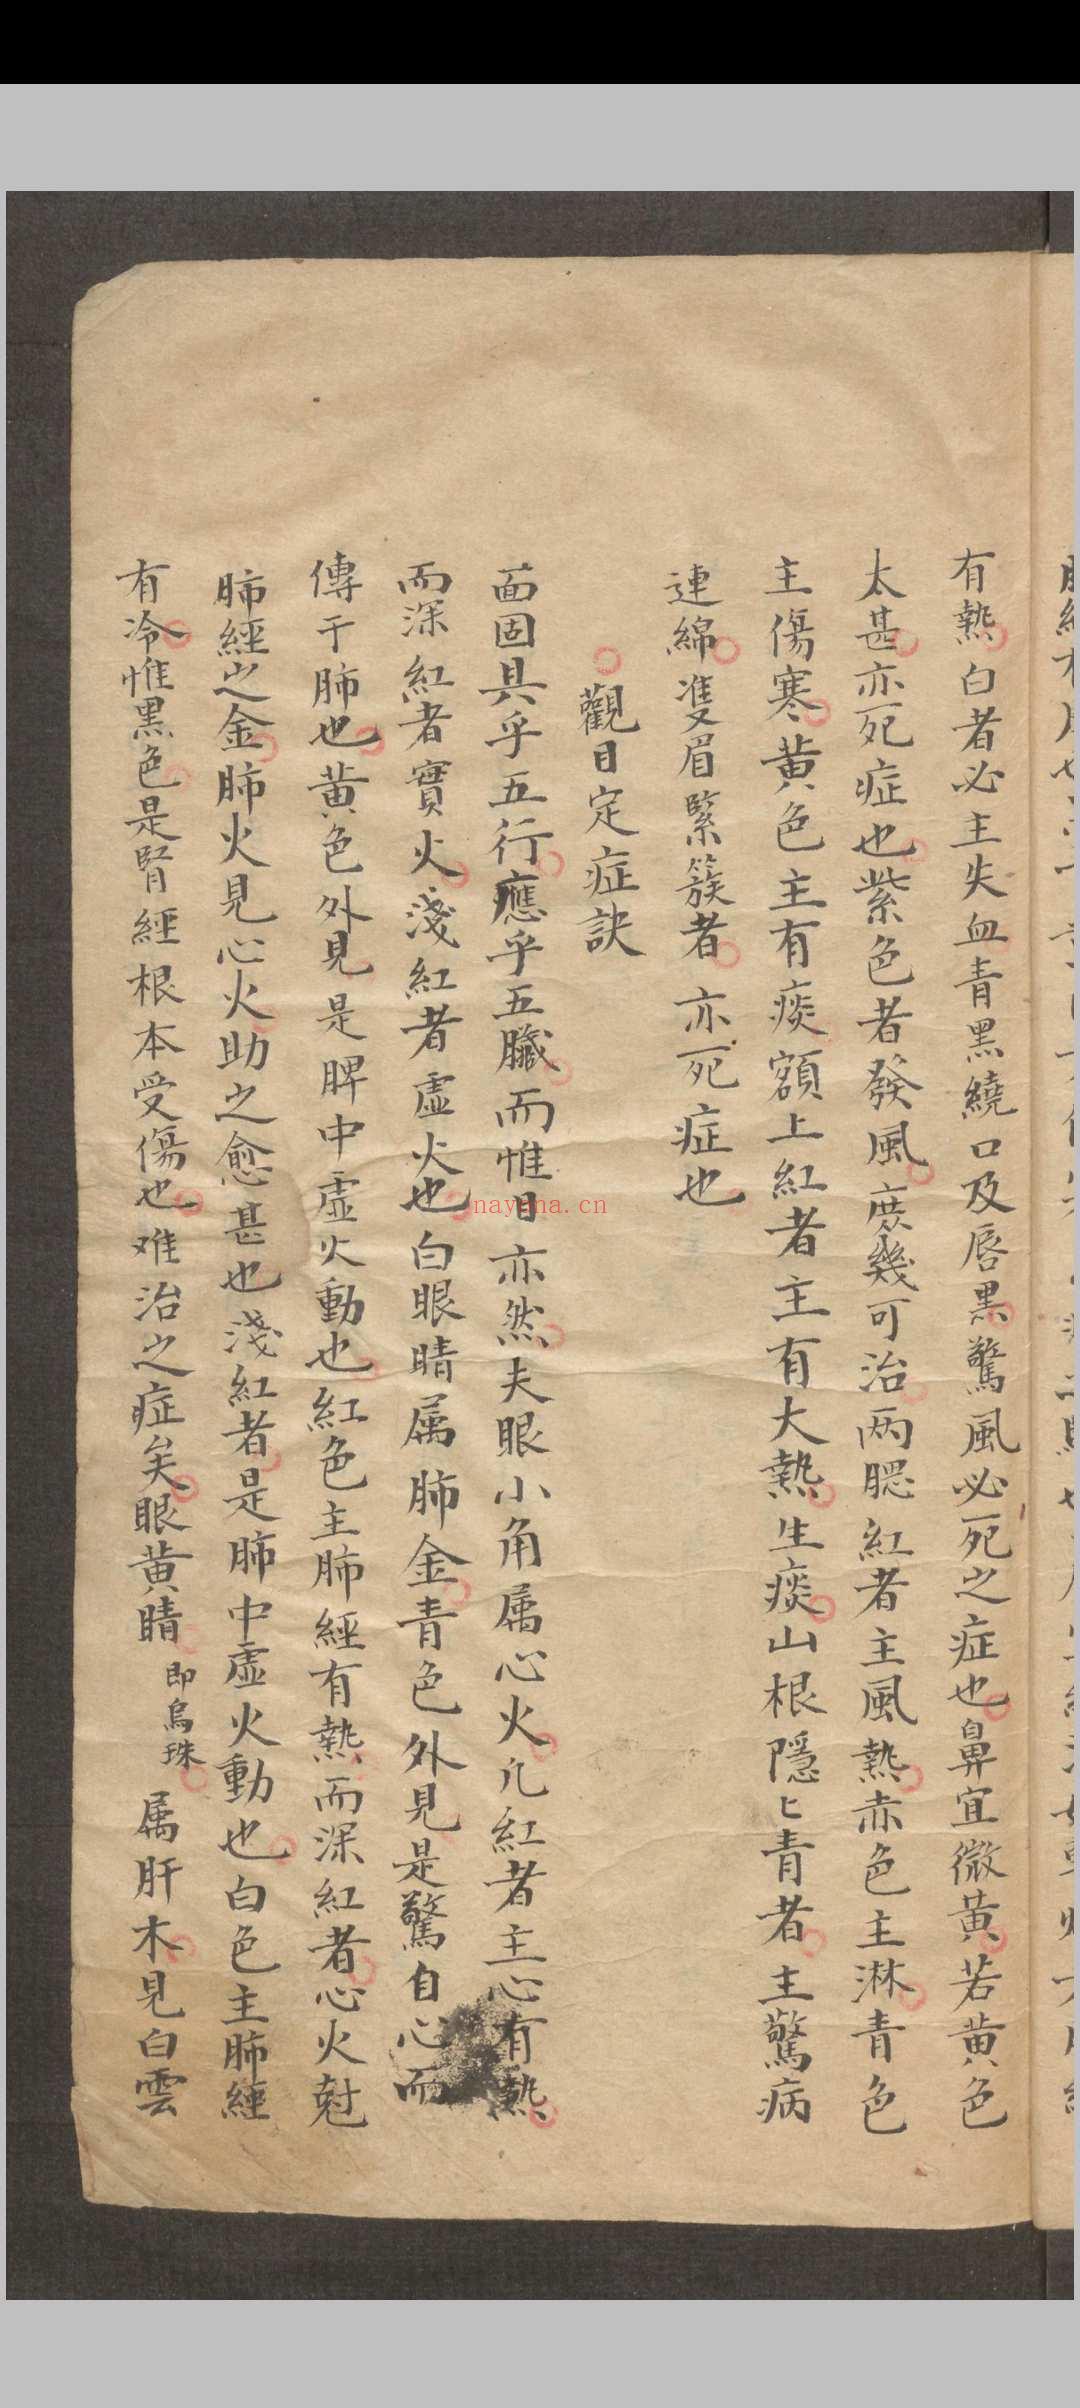 有熱白者必主失血青黑繞口及唇黑驚風必死之症也鼻宜微黃若黃色
太甚亦死症也紫色者發風庶幾可治両腮紅者主風熱赤色主淋青色
主傷寒黃色主有痰額上紅者主有大熱生痰山根隱〻青者主驚病
連綿雙眉緊簇者亦死症也
觀目定症訣
面固具乎五行應乎五臟而惟目亦然夫眼小角属心火凡紅者主心有熱
而深紅者實火淺紅者虛火也白眼睛属肺金青色外見是驚自心而
傳于肺也黃色外見是脾中虛火動也紅色主肺經有熱而深紅者心火尅
肺經之金肺火見心火助之愈甚也淺紅者是肺中虛火動也白色主肺經
有冷惟黑色是腎經根本受傷也难治之症矣眼黃睛即烏珠属肝木見白雲
nayona.cn